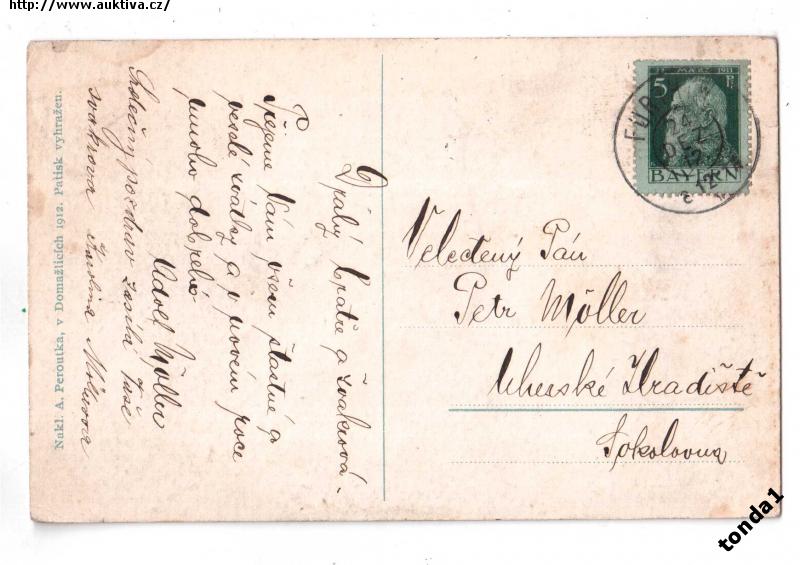 http://www.auktiva.cz/
5 MÄRZ 1911 Pf
BAYERN
FÜR
24 DEZ
12
Velectěný Pán
Petr Möller
Uherské Hradiště
Sokolovna
Drahý bratře a švakrová.
Přejeme Vám všem šťastné a
veselé svátky a v novém roce
mnoho dobrého
Adolf Möller
Srdečný pozdrav zasílá Vaše
švakrova Karolina
Nakl. A. Peroutka, v Domažlicích 1912. Patisk vyhražen.
tonda1